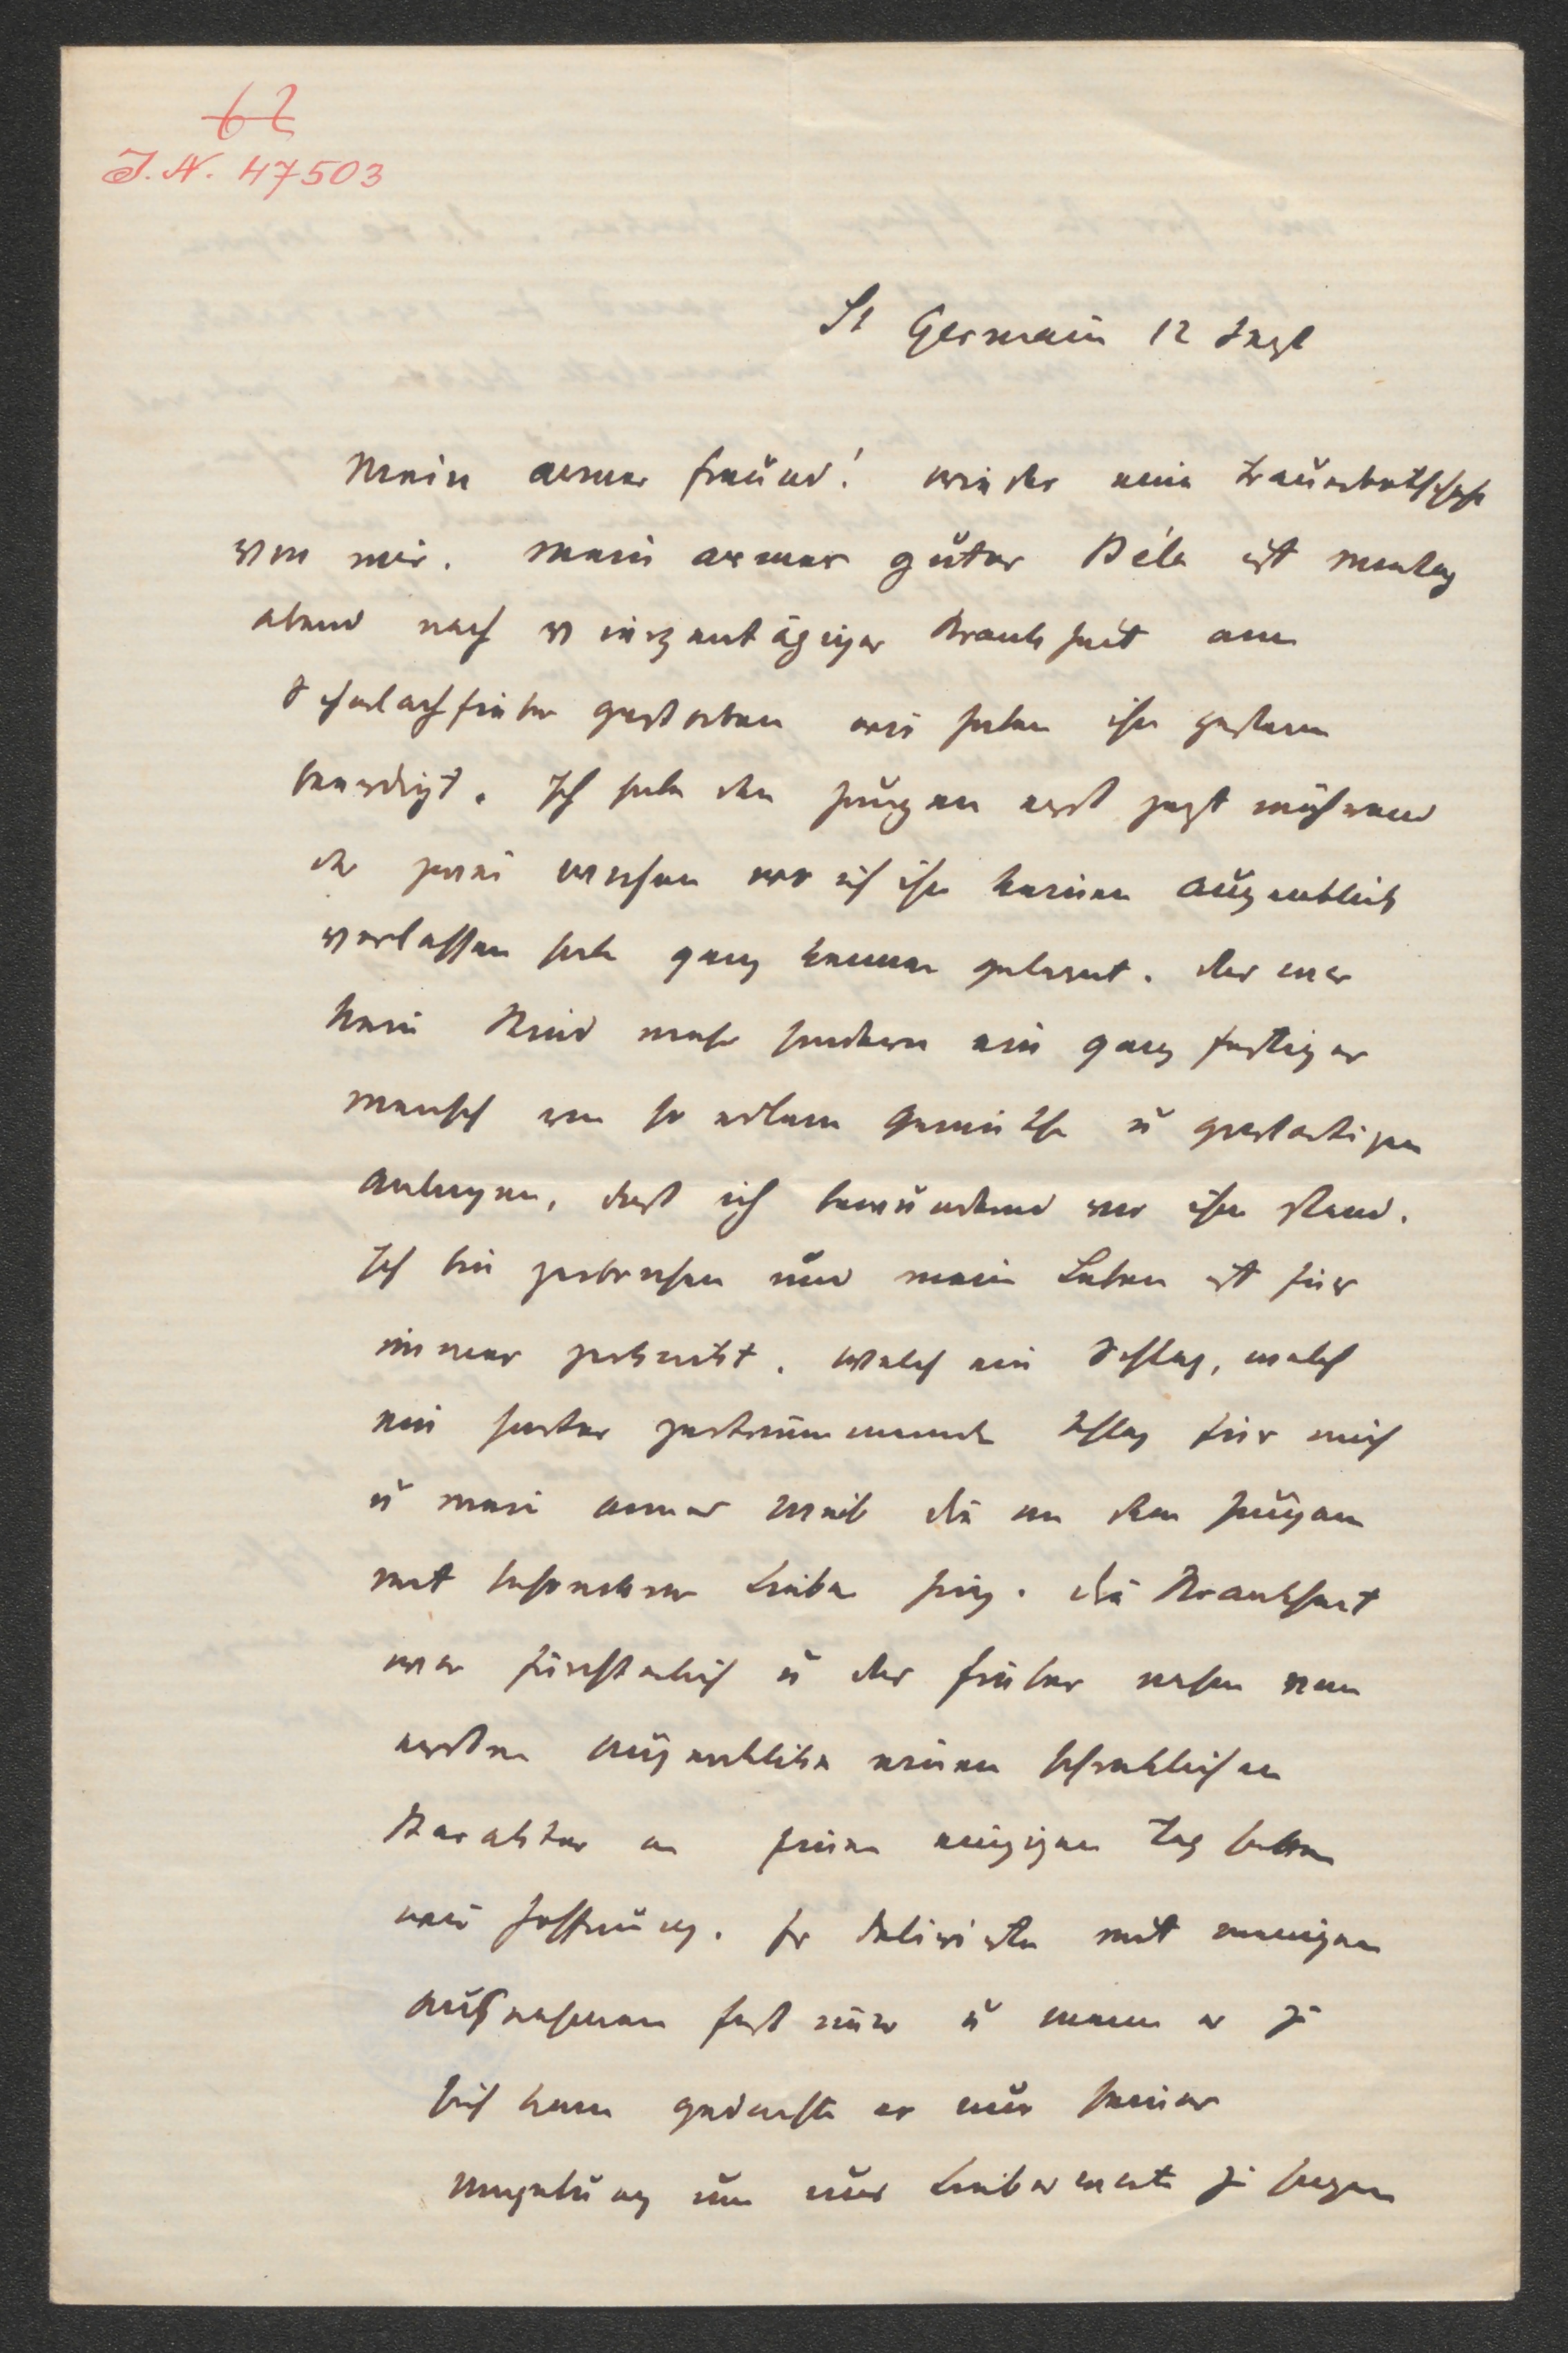 62
I. N. 47503
St Germain 12 Sept
Mein armer Freund! wieder eine Trauerbotschaft
von mir. Mein armer guter Béla ist montag
abend nach vierzentägiger Krankheit am
Scharlachfieber gestorben wir haben ihn gestern
beerdigt. Ich habe den jungen erst jezt während
der zwei wochen wo ich ihn keinen augenblick
verlassen habe ganz kennen gelernt. der war
kein Kind mehr sondern ein ganz fertiger
mensch von so edlem gemüthe u großartigen
anlagen, daß ich bewundernd vor ihm stand.
Ich bin gebrochen und mein Leben ist für
immer geknickt. Welch ein Schlag, welch
ein harter zertrümmernder Schlag für mich
u mein armes Weib die an dem jungen
mit besonderer Liebe hing. die Krankheit
war fürchterlich u das fieber nahm vom
ersten augenblicke einen schrecklichen
Karakter an keinen einzigen Tag hatten
wir hoffnung. Er delirirte mit wenigen
ausnahmen fast nur u wenn er zu
sich kam gedachte er nur seiner
umgebung um nur Liebeworte zu sagen